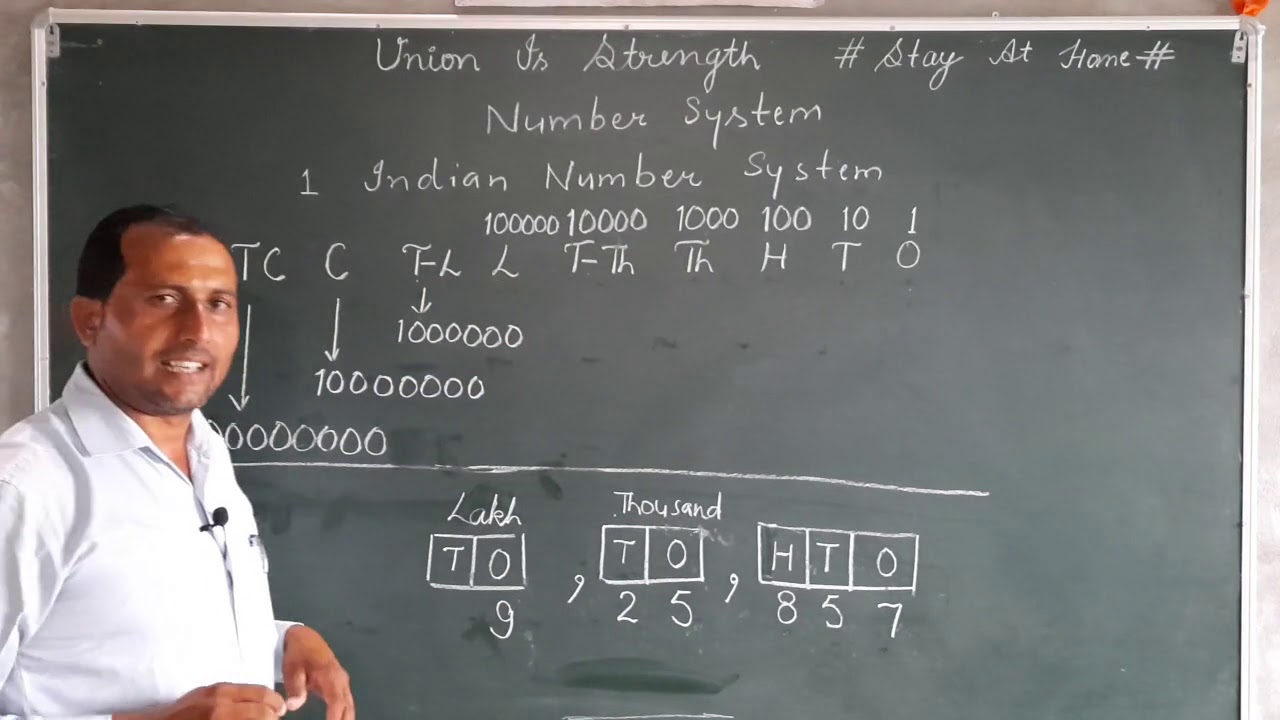 Union Is Strength # Stay At Home #
Number System
1 Indian Number System
100000 10000 1000 100 10 1
TC C T-L L T-Th Th H T O
1000000
10000000
00000000
Lakh Thousand
T O , T O , H T O
9 2 5 8 5 7